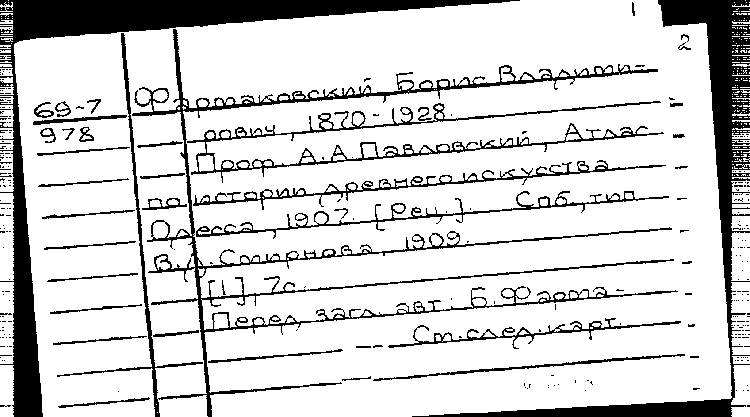 1
2
69-7 Фармаковский, Борис Владими-
978 рович, 1870-1928.
Проф. А.А Павловский, Атлас
по истории древнего искусства
Одесса, 1907. [Рец.]. Спб., тип
В.Д. Смирнова, 1909.
[1], 7с.
Перед загл. авт: Б. Фарма-
См. след. карт.